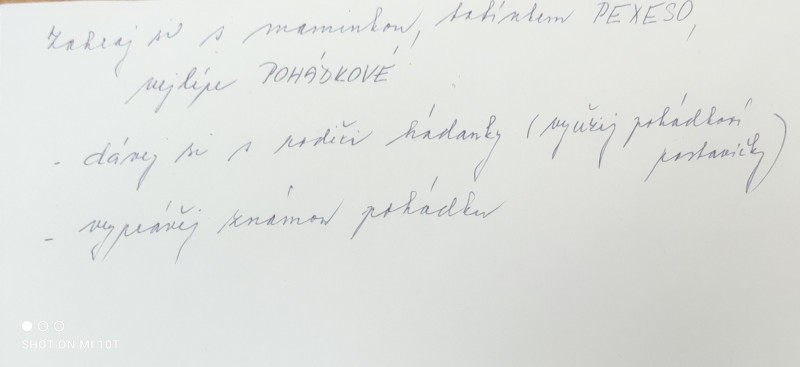 Zahraj si s maminkou, tatínkem PEXESO,
nejlépe POHÁDKOVÉ
- dávej si s rodiči hádanky (využij pohádkoví
postavičky)
- vyprávěj známou pohádku
SHOT ON MI 10T